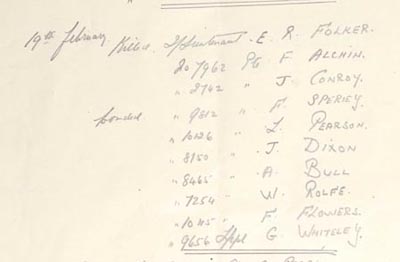 19th February Killed 2/Lieutenant E. R. FOLKER.
207962 Pte F ALCHIN.
" 8742 " J CONROY.
wounded " 9812 " F. SPERLEY
" 10126 " L PEARSON.
" 8150 " J. DIXON
" 8465 " A. BULL
" 7254 " W. ROLFE.
" 10415 " F. FLOWERS.
" 9656 L/Cpl G. WHITELEY.